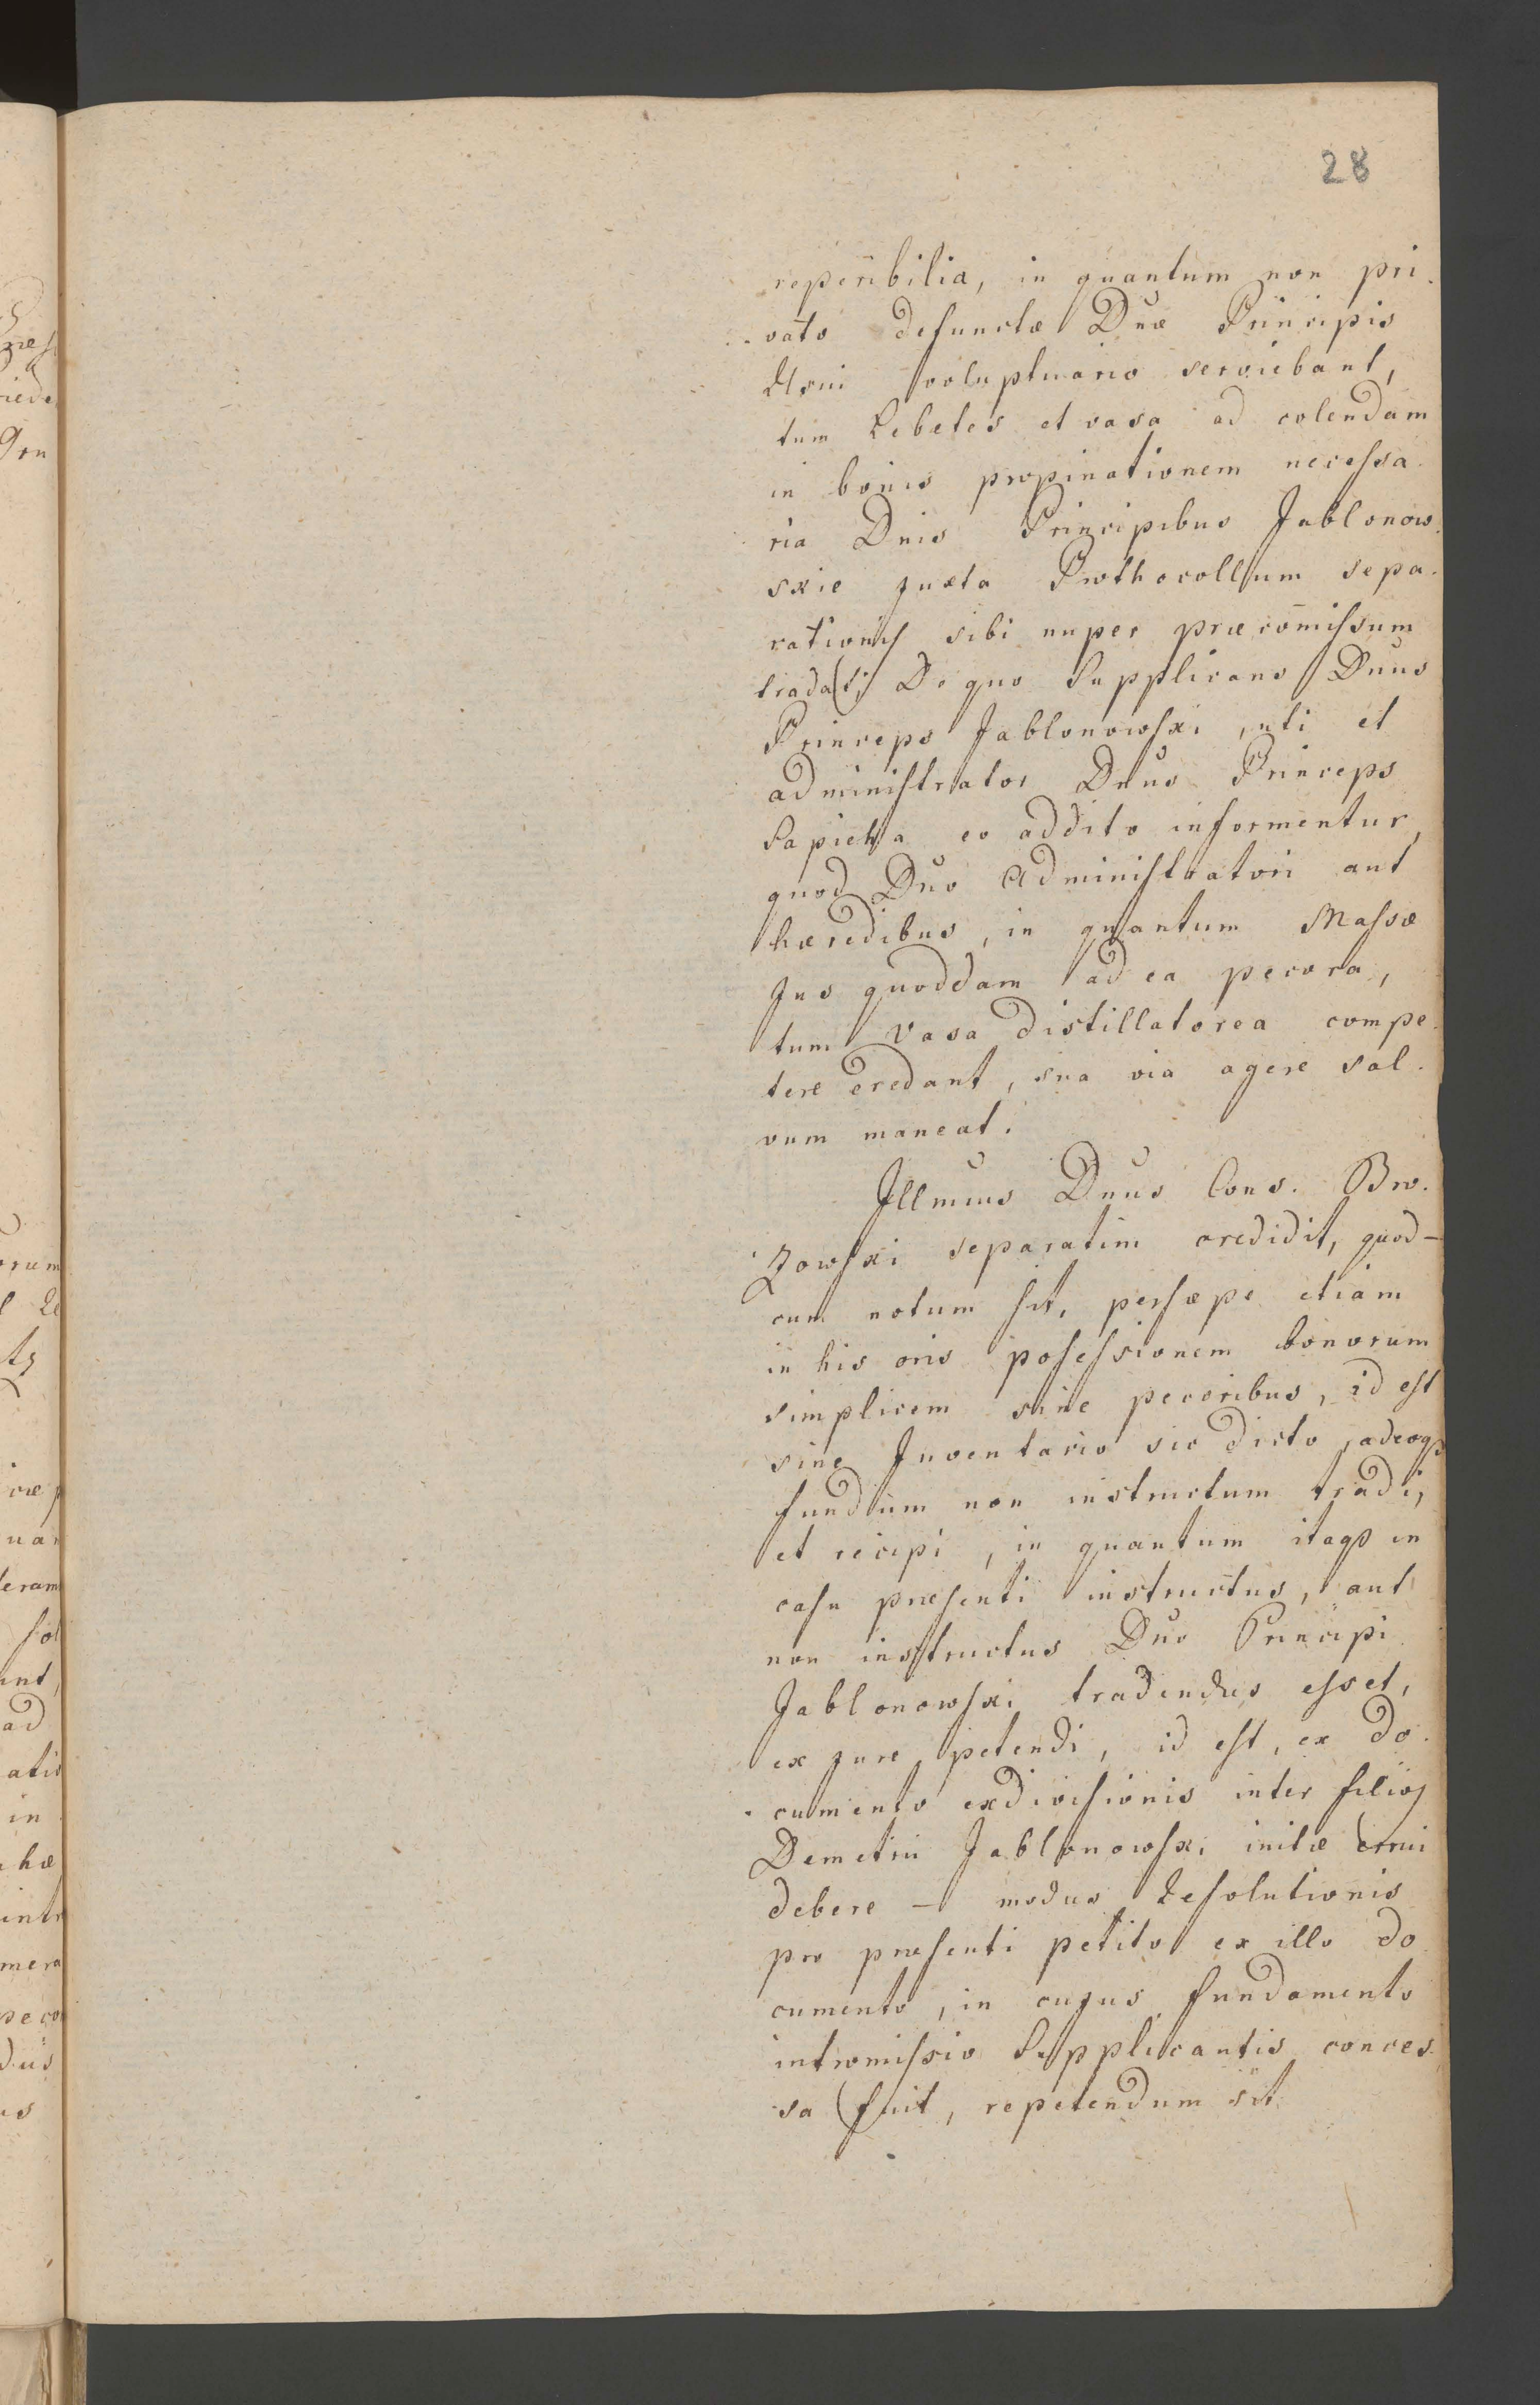 28
reperibilia, in quantum non pri-
vato defunctæ Dnæ Principis
Usui voluptuario serviebant,
tum Lebetes et vasa ad colendam
in bonis propinationem necessa-
ria Dnis Principibus Jablonow-
skie juxta Prothocollum sepa-
rationis sibi nuper præcom̄issum
tradat; De quo Supplicans Dnus
Princeps Jablonowski, uti et
administrator Dnus Princeps
Sapieha eo addito informentur,
quod Dno Administratori aut
hæredibus, in quantum Massæ
Jus quoddam ad ea pecora,
tum vasa distillatorea compe-
tere credant, sua via agere sal-
vum maneat.
Illmus Dnus Cons. Bro-
zowski separatim credidit, quod-
cum notum sit, persæpe etiam
in his oris possessionem bonorum
simplicem sine pecoribus, id est
sine Inventario sic dicto, adeoq3
fundum non instructum tradi,
et recipi, in quantum itaq3 in
casu præsenti instructus, aut
non instructus Dno Principi
Jablonowski tradendus esset,
ex jure petendi, id est, ex do-
cumento exdivisionis inter filios
Demetrii Jablonowski initæ erui
debere – modus Resolutionis
pro præsenti petito ex illo do
cumento, in cujus fundamento
intromissio Supplicantis conces-
sa fuit, repetendum sit